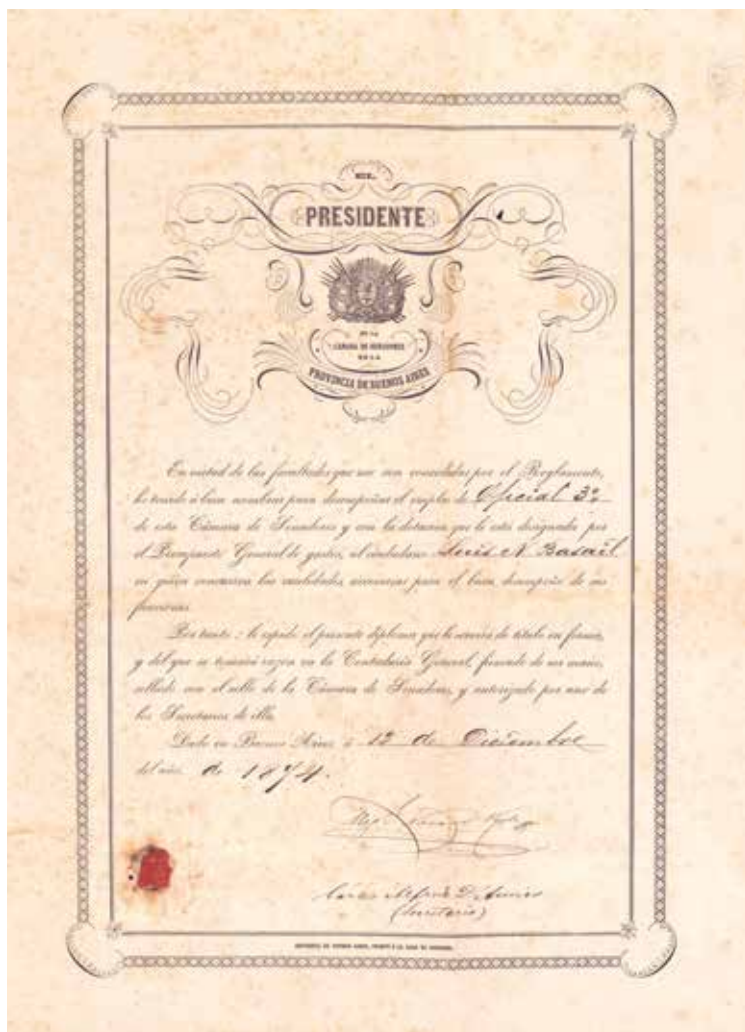 EL
PRESIDENTE
DE LA
CAMARA DE SENADORES
DE LA
PROVINCIA DE BUENOS AIRES
En virtud de las facultades que me son concedidas por el Reglamento,
he tenido á bien nombrar para desempeñar el empleo de Oficial 3º
de esta Cámara de Senadores y con la dotacion que le está designada por
el Presupuesto General de gastos, al ciudadano Luis N Basail
en quien concurren las cualidades necesarias para el buen desempeño de sus
funciones.
Por tanto: le espido el presente diploma que le servirá de título en forma,
y del que se tomará razon en la Contaduria General, firmado de mi mano,
sellado con el sello de la Cámara de Senadores, y autorizado por uno de
los Secretarios de ella.
Dado en Buenos Aires á 12 de Diciembre
del año de 1874.
Carlos Alfredo D'Amico
(Secretario)
IMPRENTA DE BUENOS AIRES, FRENTE A LA CASA DE GOBIERNO.